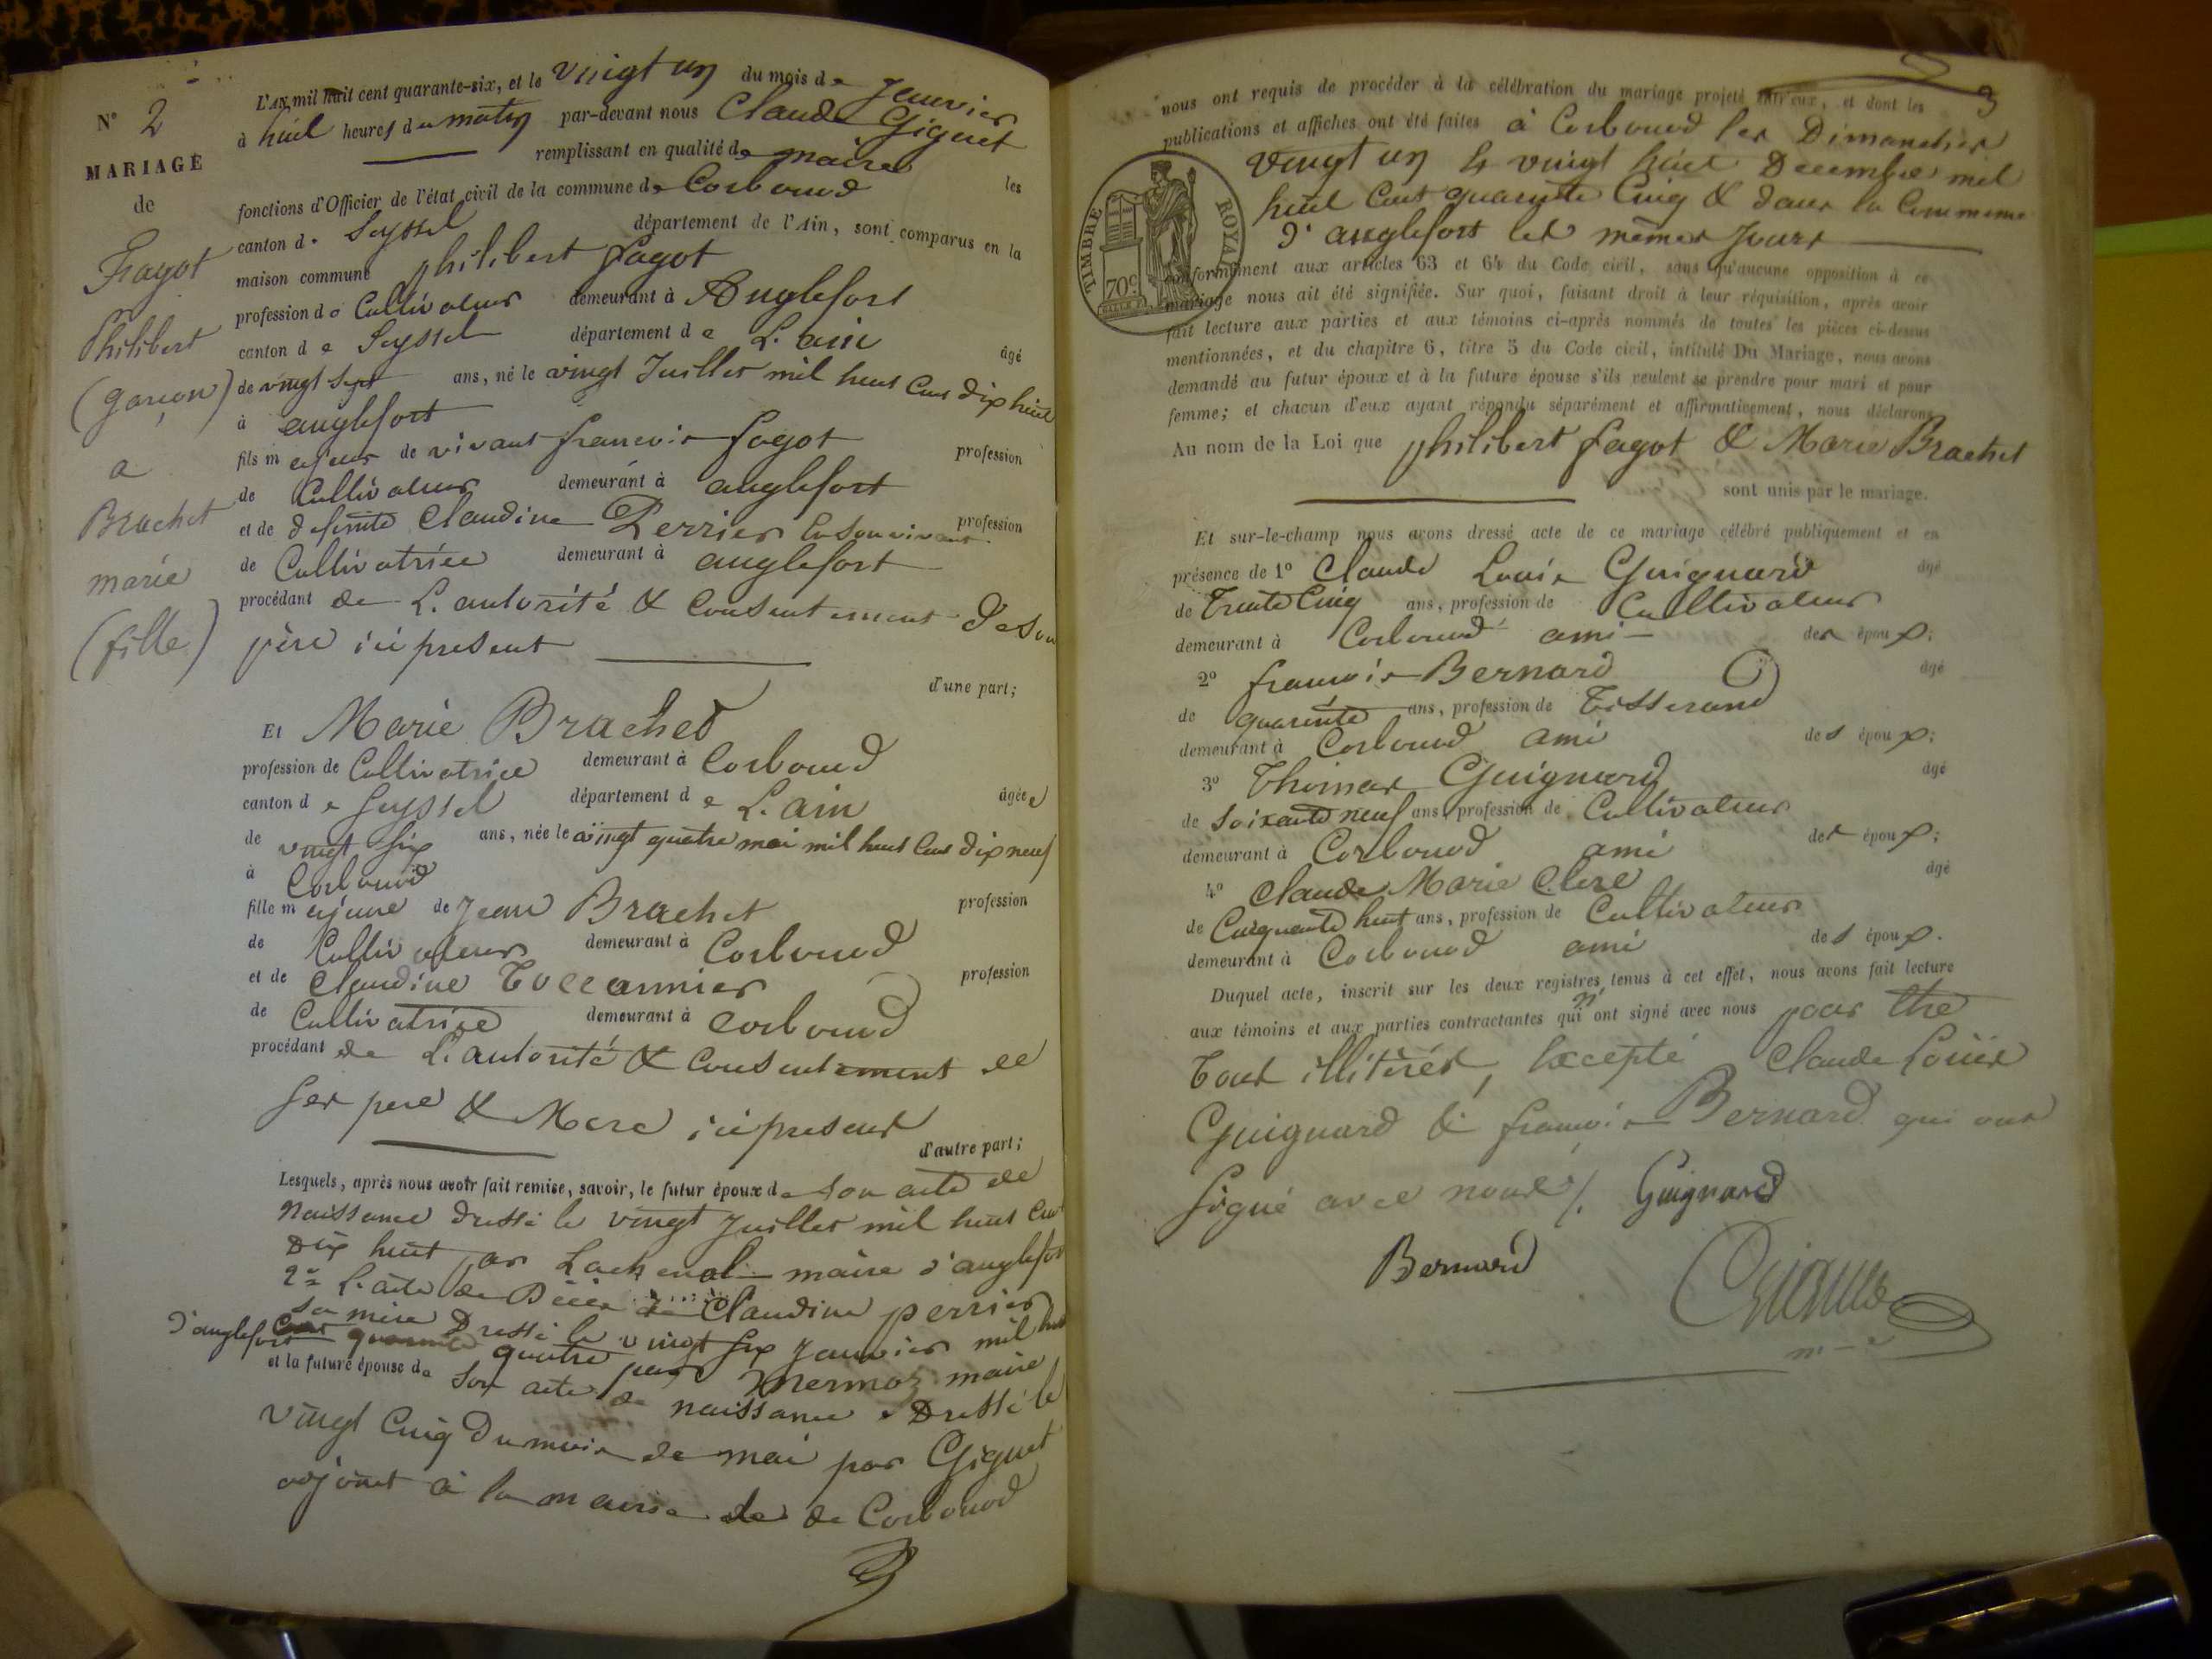 N° 2
MARIAGE
de
Fagot
Philibert
(garçon)
a
Brachet
marie
(fille)
L'AN mil huit cent quarante-six, et le vingt un du mois de Janvier
à huit heures du matin par-devant nous Claude Giguet
remplissant en qualité de maire les
fonctions d'Officier de l'état civil de la commune de Corbonod
canton de Seyssel département de l'Ain, sont comparus en la
maison commune philibert fagot
profession de Cultivateur demeurant à Anglefort
canton de Seyssel département de L'ain âgé
de vingt sept ans, né le vingt Juillet mil huit Cent dix huit
à anglefort
fils majeur de vivant francois fagot profession
de Cultivateur demeurant à anglefort
et de defunte Claudine Perrier En son vivant profession
de Cultivatrice demeurant à anglefort
procédant de L'autorité & Consentement de son
père ici present
d'une part;
Et Marie Brachet
profession de Cultivatrice demeurant à Corbonod
canton de Seyssel département de L'ain âgée
de vingt six ans, née le vingt quatre mai mil huit Cent dix neuf
à Corbonod
fille majeure de Jean Brachet profession
de Cultivateur demeurant à Corbonod
et de Claudine Toccannier profession
de Cultivatrice demeurant à Corbonod
procédant de L'autorité & Consentement de
Ses pere & Mere ici present
d'autre part;
Lesquels, après nous avoir fait remise, savoir, le futur époux de son acte de
Naissance dressé le vingt Juillet mil huit Cent
Dix huit par Lachenal maire d'anglefort
2° L'acte de Décès de Claudine perrier
sa mère Dressé le vingt six Janvier mil huit
d'anglefort Cent quarante quatre par Mermoz maire
et la future épouse de son acte de naissance Dressé le
vingt Cinq du mois de mai par Giguet
adjoint à la mairie de de Corbonod
3
nous ont requis de procéder à la célébration du mariage projeté entr'eux, et dont les
publications et affiches ont été faites à Corbonod les Dimanches
vingt un & vingt huit Decembre mil
huit Cent quarante Cinq & dans la Commune
d'anglefort les mêmes Jours
TIMBRE ROYAL
70c
conformément aux articles 63 et 64 du Code civil, sans qu'aucune opposition à ce
mariage nous ait été signifiée. Sur quoi, faisant droit à leur réquisition, après avoir
fait lecture aux parties et aux témoins ci-après nommés de toutes les pièces ci-dessus
mentionnées, et du chapitre 6, titre 5 du Code civil, intitulé Du Mariage, nous avons
demandé au futur époux et à la future épouse s'ils veulent se prendre pour mari et pour
femme; et chacun d'eux ayant répondu séparément et affirmativement, nous déclarons
Au nom de la Loi que philibert fagot & Marie Brachet
sont unis par le mariage.
Et sur-le-champ nous avons dressé acte de ce mariage célébré publiquement et en
présence de 1° Claude Louis Guignard âgé
de Trente Cinq ans, profession de Cultivateur
demeurant à Corbonod ami des époux;
2° francois Bernard âgé
de quarente ans, profession de Tisserand
demeurant à Corbonod ami des époux;
3° Thomas Guignard âgé
de soixante neuf ans, profession de Cultivateur
demeurant à Corbonod ami des époux;
4° Claude Marie Clerc âgé
de Cinquante huit ans, profession de Cultivateur
demeurant à Corbonod ami des époux.
Duquel acte, inscrit sur les deux registres tenus à cet effet, nous avons fait lecture
aux témoins et aux parties contractantes qui n'ont signé avec nous pour être
Tous illitérés, Excepté Claude Louis
Guignard & francois Bernard qui ont
signé avec nous
Guignard
Bernard
Giguet